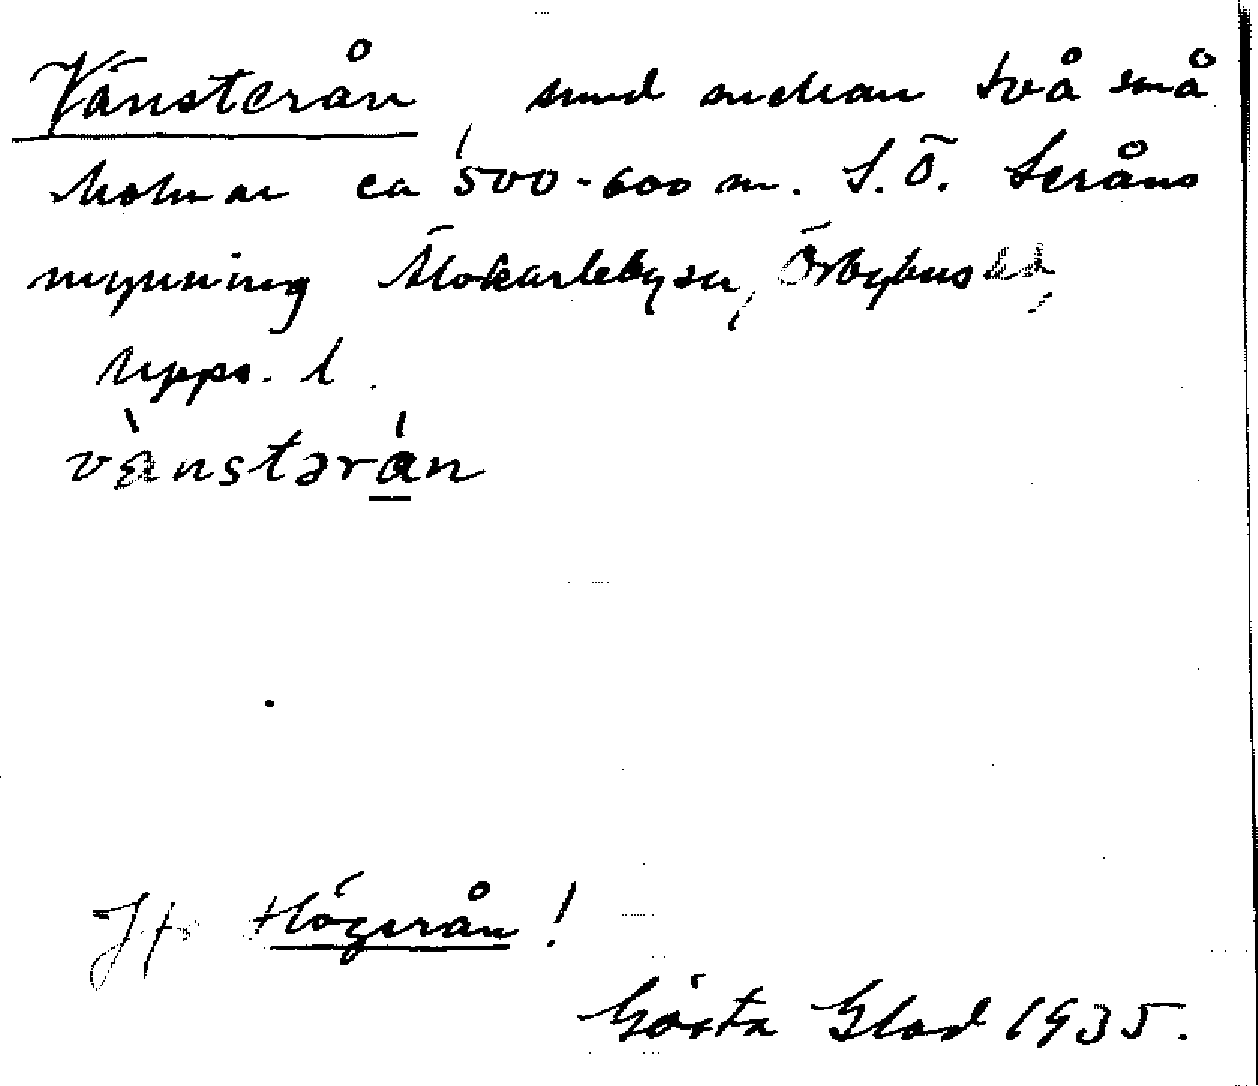 Vänsterån, sund mellan två små
holmar ca 500-600 m. S.Ö. Leråns
mynning Älvkarleby sn, Örbyhus hd,
Upps. l.
vànstərán
Jfr Högerån!
Gösta Glad 1935.